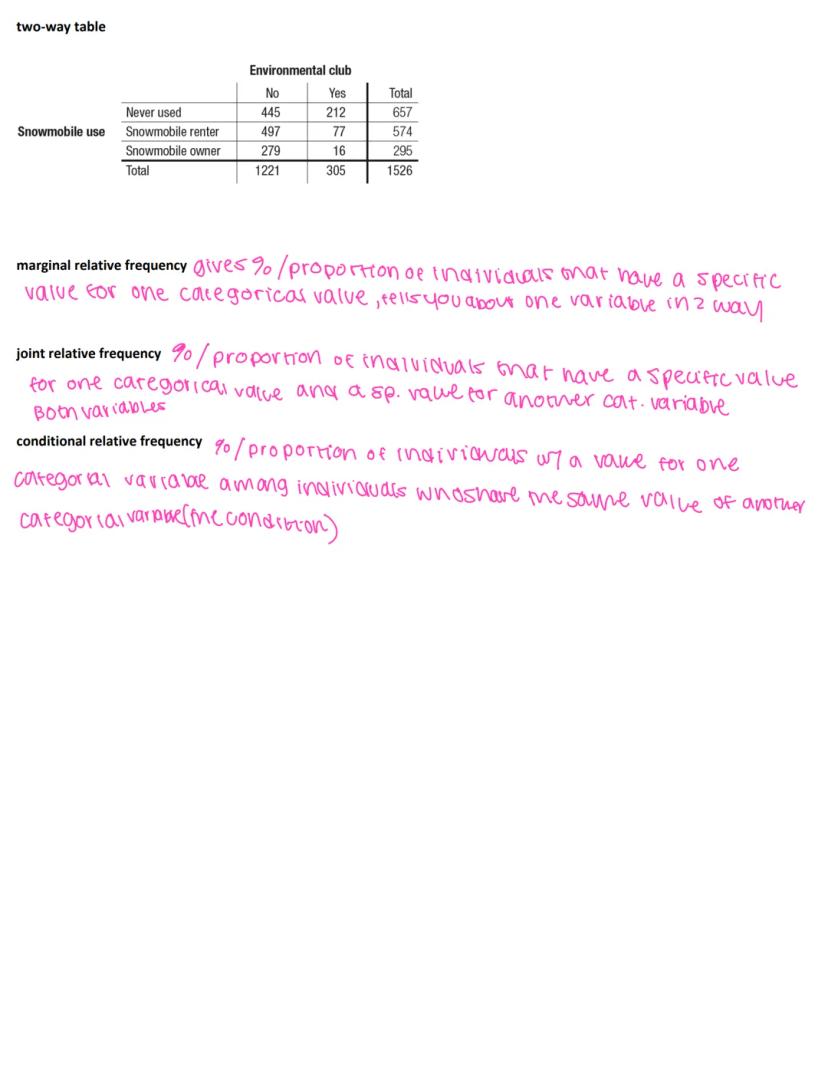 two-way table
Environmental club
No Yes Total
Never used 445 212 657
Snowmobile use Snowmobile renter 497 77 574
Snowmobile owner 279 16 295
Total 1221 305 1526
marginal relative frequency gives %/proportion of individuals that have a specific
value for one categorical value, tells you about one variable in 2 way
joint relative frequency %/proportion of individuals that have a specific value
for one categorical value and a sp. value for another cat. variable
Both variables
conditional relative frequency %/proportion of individuals w/ a value for one
categorial variable among individuals who share the same value of another
categorial variable (the condition)